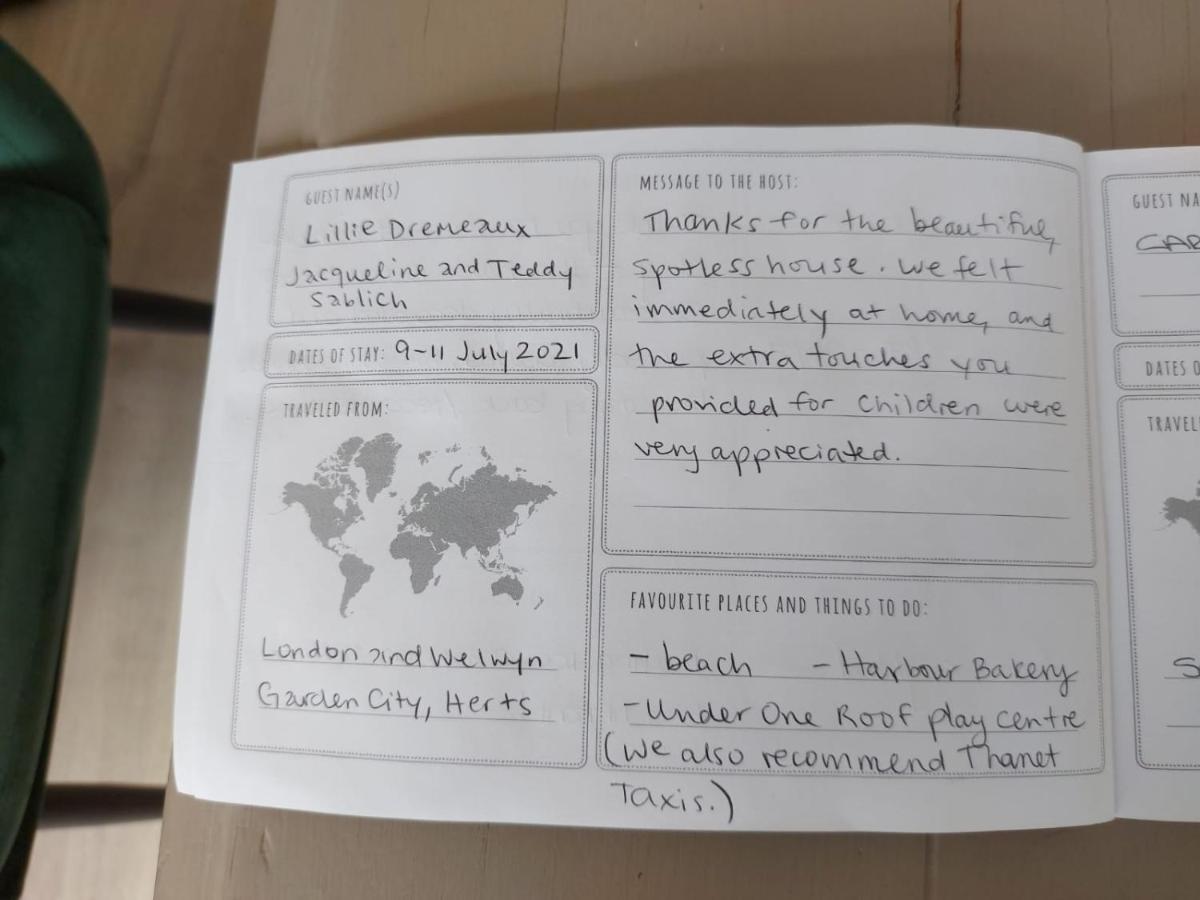 GUEST NAME(S)
Lillie Dremeaux
Jacqueline and Teddy
Sablich
DATES OF STAY: 9-11 July 2021
TRAVELED FROM:
London and Welwyn
Garden City, Herts
MESSAGE TO THE HOST:
Thanks for the beautiful,
spotless house. We felt
immediately at home, and
the extra touches you
provided for children were
very appreciated.
FAVOURITE PLACES AND THINGS TO DO:
- beach - Harbour Bakery
- Under One Roof play centre
(We also recommend Thanet
Taxis.)
GUEST NA
CAR
DATES O
TRAVEL
S